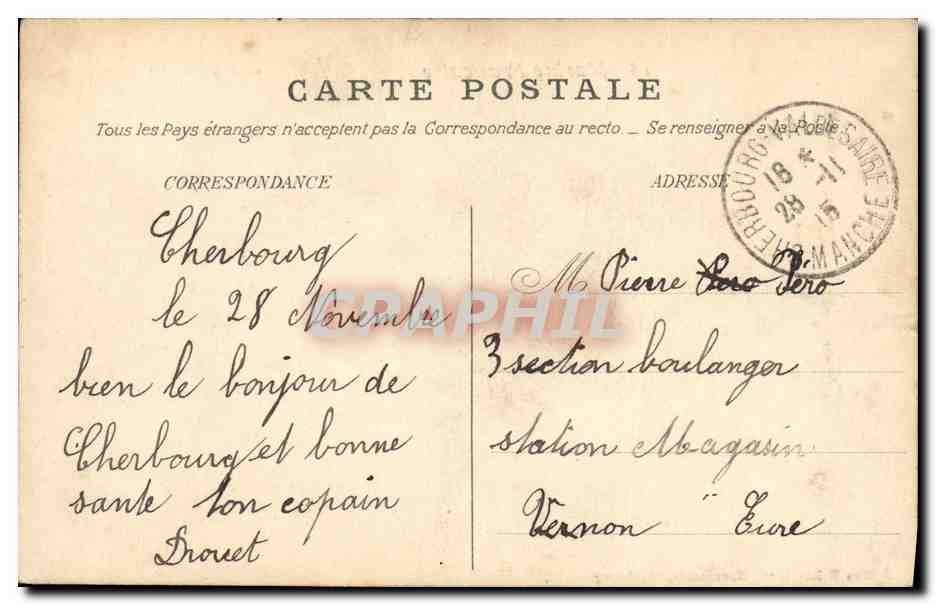 CARTE POSTALE
Tous les Pays étrangers n'acceptent pas la Correspondance au recto _ Se renseigner à la Poste
CORRESPONDANCE
ADRESSE
CHERBOURG-VAL DE SAIRE
MANCHE
18 * 11
28 15
Cherbourg
le 28 Novembre
bien le bonjour de
Cherbourg et bonne
sante ton copain
Drouet
M Pierre Péro
3 section boulanger
station Magasin
Vernon " Eure
GRAPHIL